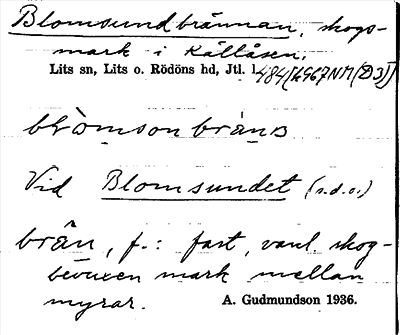 Blomsundbrännan, skogs-
mark i Kållåsen.
Lits sn, Lits o. Rödöns hd, Jtl. l.
Vid Blomsundet (s.d.o.)
brän, f.: fast, vanl. skog-
bevuxen mark mellan
myrar. A. Gudmundson 1936.